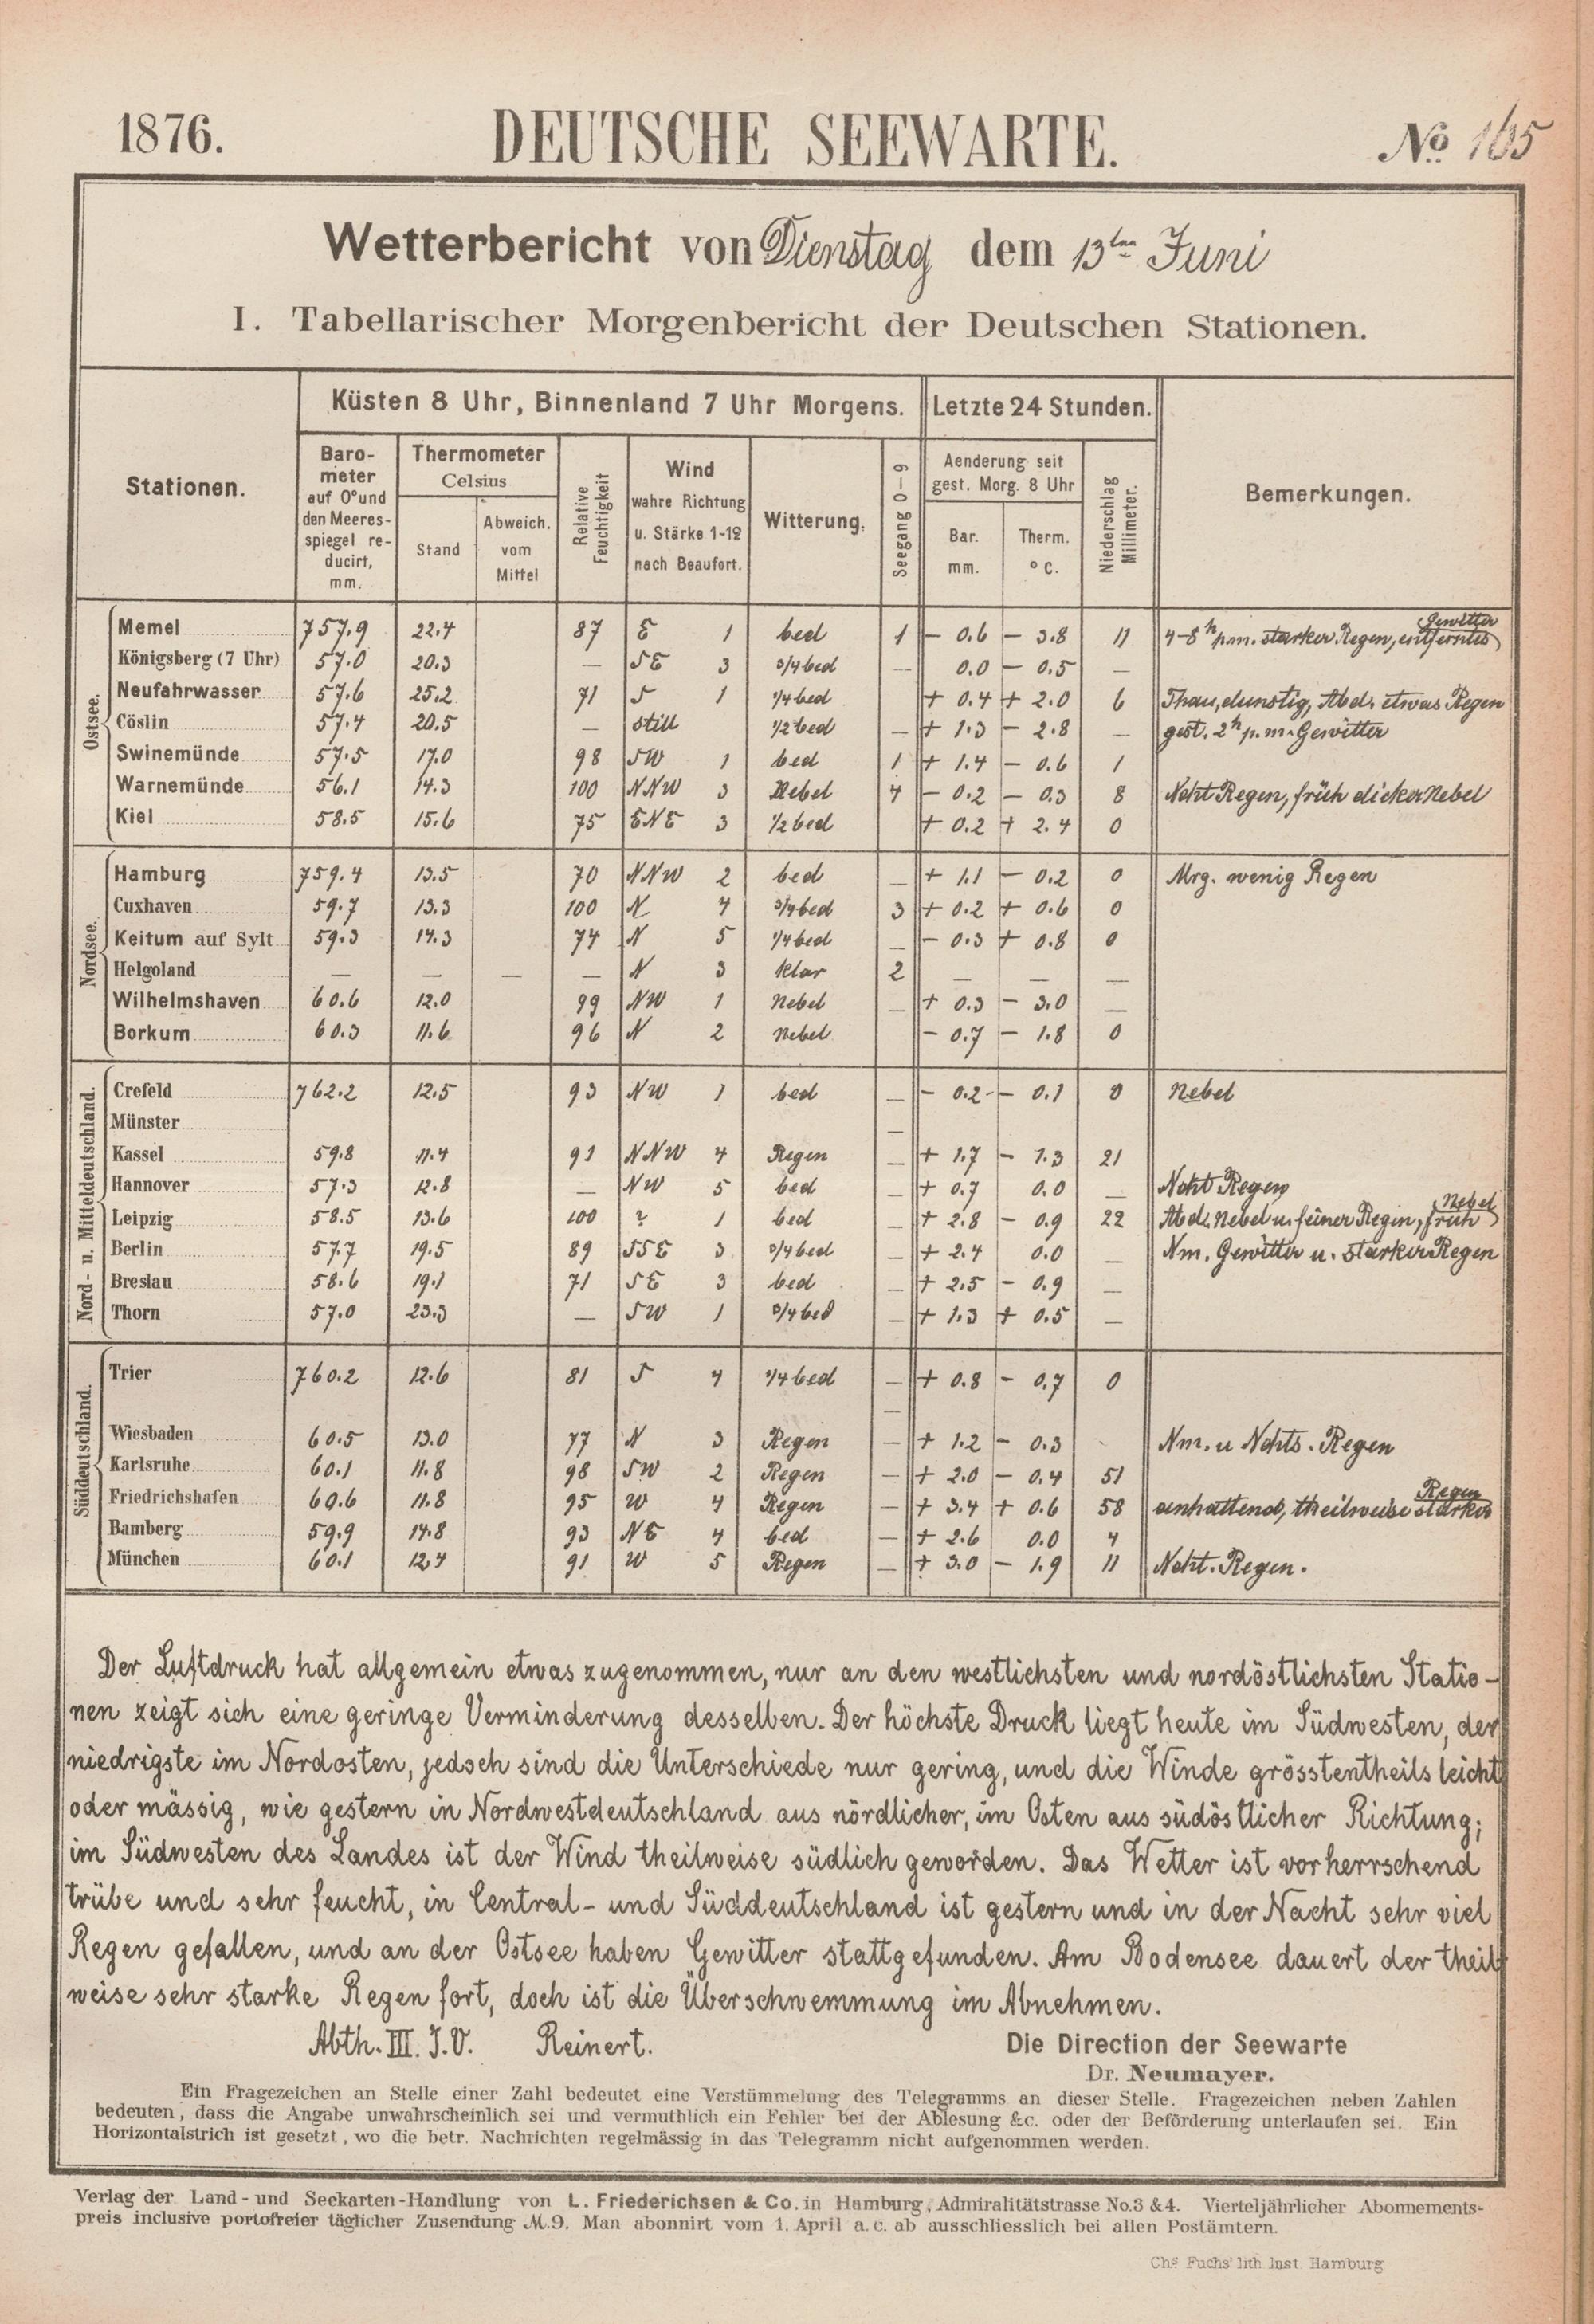 1876. DEUTSCHE SEEWARTE. No. 165
Wetterbericht von Dienstag dem 13ten Juni
I. Tabellarischer Morgenbericht der Deutschen Stationen.
Stationen. Küsten 8 Uhr, Binnenland 7 Uhr Morgens. Letzte 24 Stunden. Bemerkungen.
Barometer auf 0° und den Meeresspiegel reducirt, mm. Thermometer Celsius Stand Abweich. vom Mittel Relative Feuchtigkeit Wind wahre Richtung u. Stärke 1-12 nach Beaufort. Witterung. Seegang 0-9 Aenderung seit gest. Morg. 8 Uhr Bar. mm. Therm. °C. Niederschlag Millimeter.
Ostsee.
Memel 757.9 22.4 87 E 1 bed 1 - 0.6 - 3.8 11 4-8h p.m. starker Regen, entferntes Gewitter
Königsberg (7 Uhr) 57.0 20.3 — SE 3 3/4 bed — 0.0 - 0.5 —
Neufahrwasser 57.6 25.2 71 S 1 1/4 bed + 0.4 + 2.0 6 Thau, dunstig, Abds. etwas Regen
Cöslin 57.4 20.5 — still 1/2 bed — + 1.3 - 2.8 — gest. 2h p.m. Gewitter
Swinemünde 57.5 17.0 98 SW 1 bed 1 + 1.4 - 0.6 1
Warnemünde 56.1 14.3 100 NNW 3 Nebel 4 - 0.2 - 0.3 8 Ncht Regen, früh dicker Nebel
Kiel 58.5 15.6 75 ENE 3 1/2 bed + 0.2 + 2.4 0
Nordsee.
Hamburg 759.4 13.5 70 NNW 2 bed — + 1.1 - 0.2 0 Mrg. wenig Regen
Cuxhaven 59.7 13.3 100 N 4 3/4 bed 3 + 0.2 + 0.6 0
Keitum auf Sylt 59.3 14.3 74 N 5 1/4 bed — - 0.3 + 0.8 0
Helgoland — — — — N 3 klar 2 — — —
Wilhelmshaven 60.6 12.0 99 NW 1 Nebel — + 0.3 - 3.0 —
Borkum 60.3 11.6 96 N 2 Nebel - 0.7 - 1.8 0
Nord- u. Mitteldeutschland.
Crefeld 762.2 12.5 93 NW 1 bed — - 0.2 - 0.1 0 Nebel
Münster —
Kassel 59.8 11.4 91 NNW 4 Regen — + 1.7 - 1.3 21
Hannover 57.3 12.8 — NW 5 bed — + 0.7 0.0 — Ncht Regen
Leipzig 58.5 13.6 100 ? 1 bed — + 2.8 - 0.9 22 Abds. Nebel u. feiner Regen, früh Nebel
Berlin 57.7 19.5 89 SSE 3 3/4 bed — + 2.4 0.0 — Nm. Gewitter u. starker Regen
Breslau 58.6 19.1 71 SE 3 bed — + 2.5 - 0.9 —
Thorn 57.0 23.3 — SW 1 3/4 bed — + 1.3 + 0.5 —
Süddeutschland.
Trier 760.2 12.6 81 S 4 1/4 bed — + 0.8 - 0.7 0
—
Wiesbaden 60.5 13.0 77 N 3 Regen — + 1.2 - 0.3 Nm. u Nchts. Regen
Karlsruhe 60.1 11.8 98 SW 2 Regen — + 2.0 - 0.4 51
Friedrichshafen 60.6 11.8 95 W 4 Regen — + 3.4 + 0.6 58 anhaltend, theilweise starker Regen
Bamberg 59.9 14.8 93 NE 4 bed — + 2.6 0.0 4
München 60.1 12.4 91 W 5 Regen — + 3.0 - 1.9 11 Ncht. Regen.
Der Luftdruck hat allgemein etwas zugenommen, nur an den westlichsten und nordöstlichsten Statio-
nen zeigt sich eine geringe Verminderung desselben. Der höchste Druck liegt heute im Südwesten, der
niedrigste im Nordosten, jedoch sind die Unterschiede nur gering, und die Winde grösstentheils leicht
oder mässig, wie gestern in Nordwestdeutschland aus nördlicher, im Osten aus südöstlicher Richtung;
im Südwesten des Landes ist der Wind theilweise südlich geworden. Das Wetter ist vorherrschend
trübe und sehr feucht, in Central- und Süddeutschland ist gestern und in der Nacht sehr viel
Regen gefallen, und an der Ostsee haben Gewitter stattgefunden. Am Bodensee dauert der theil-
weise sehr starke Regen fort, doch ist die Überschwemmung im Abnehmen.
Abth. III. I.V. Reinert. Die Direction der Seewarte
Dr. Neumayer.
Ein Fragezeichen an Stelle einer Zahl bedeutet eine Verstümmelung des Telegramms an dieser Stelle. Fragezeichen neben Zahlen
bedeuten, dass die Angabe unwahrscheinlich sei und vermuthlich ein Fehler bei der Ablesung &c. oder der Beförderung unterlaufen sei. Ein
Horizontalstrich ist gesetzt, wo die betr. Nachrichten regelmässig in das Telegramm nicht aufgenommen werden.
Verlag der Land- und Seekarten-Handlung von L. Friederichsen & Co. in Hamburg, Admiralitätstrasse No. 3 & 4. Vierteljährlicher Abonnements-
preis inclusive portofreier täglicher Zusendung M. 9. Man abonnirt vom 1. April a. c. ab ausschliesslich bei allen Postämtern.
Chs Fuchs' lith Inst Hamburg